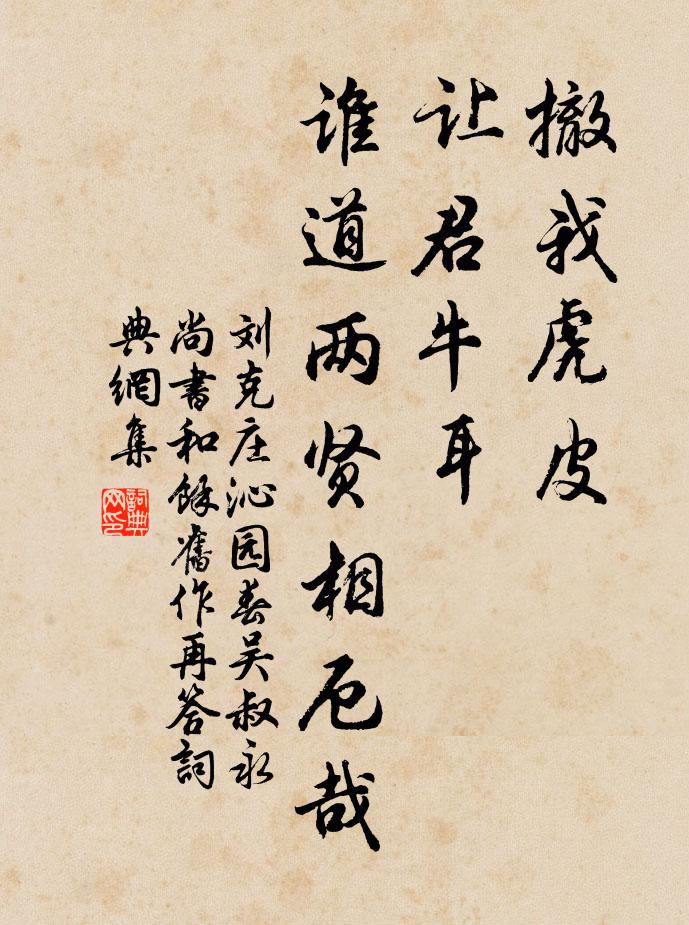 撤我虎皮
让君牛耳
谁道两贤相厄哉
刘克庄沁园春吴叔永
尚书和馀旧作再答词
典網集
詞典網印